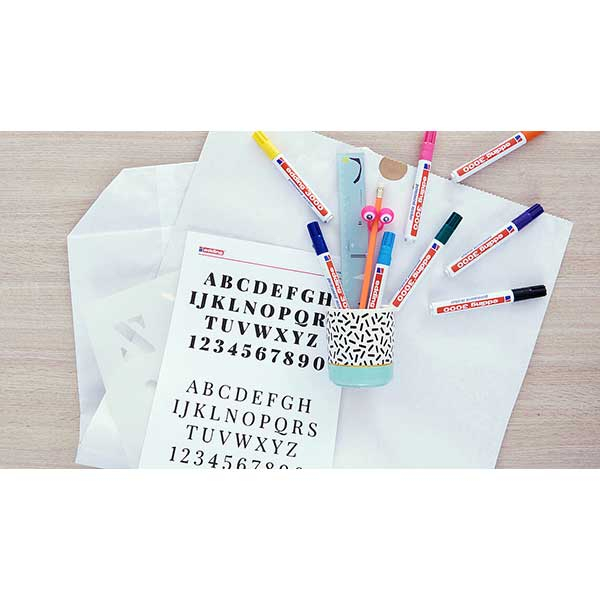 edding
ABCDEFGH
IJKLMNOPQR
STUVWXYZ
1234567890
ABCDEFGH
IJKLMNOPQRS
TUVWXYZ
1234567890
edding 3000
edding 3000
edding 3000
edding 3000
edding 3000
edding 3000